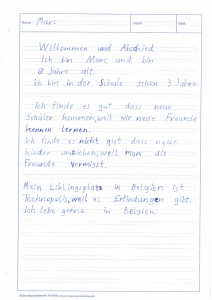 Name: Marc
Datum:
Klasse:
Willkommen und Abschied
Ich bin Marc und bin
8 Jahre alt.
Ich bin in der Schule schon 3 Jahre.
Ich finde es gut dass neue
Schüler kommen, weil wir neue Freunde
kennen lernen.
Ich finde es nicht gut dass neue
Kinder umziehen, weil man die
Freunde vermisst.
Mein Lieblingsplatz in Belgien ist
Technopolis, weil es Erfindungen gibt.
Ich lebe gerne in Belgien.